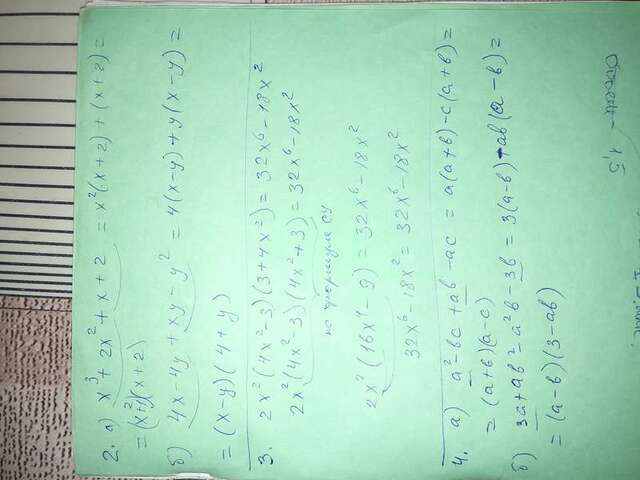 2. а) x³ + 2x² + x + 2 = x²(x + 2) + (x + 2) =
= (x²+1)(x + 2)
б) 4x - 4y + xy - y² = 4(x-y) + y(x-y) =
= (x-y)(4+y)
3. 2x²(4x²-3)(3+4x²) = 32x⁶ - 18x²
2x²(4x²-3)(4x²+3) = 32x⁶ - 18x²
по формуле СУ
2x²(16x⁴ - 9) = 32x⁶ - 18x²
32x⁶ - 18x² = 32x⁶ - 18x²
4. а) a² - bc + ab - ac = a(a+b) - c(a+b) =
= (a+b)(a-c)
б) 3a + ab² - a²b - 3b = 3(a-b) - ab(a-b) =
= (a-b)(3-ab)
1,5